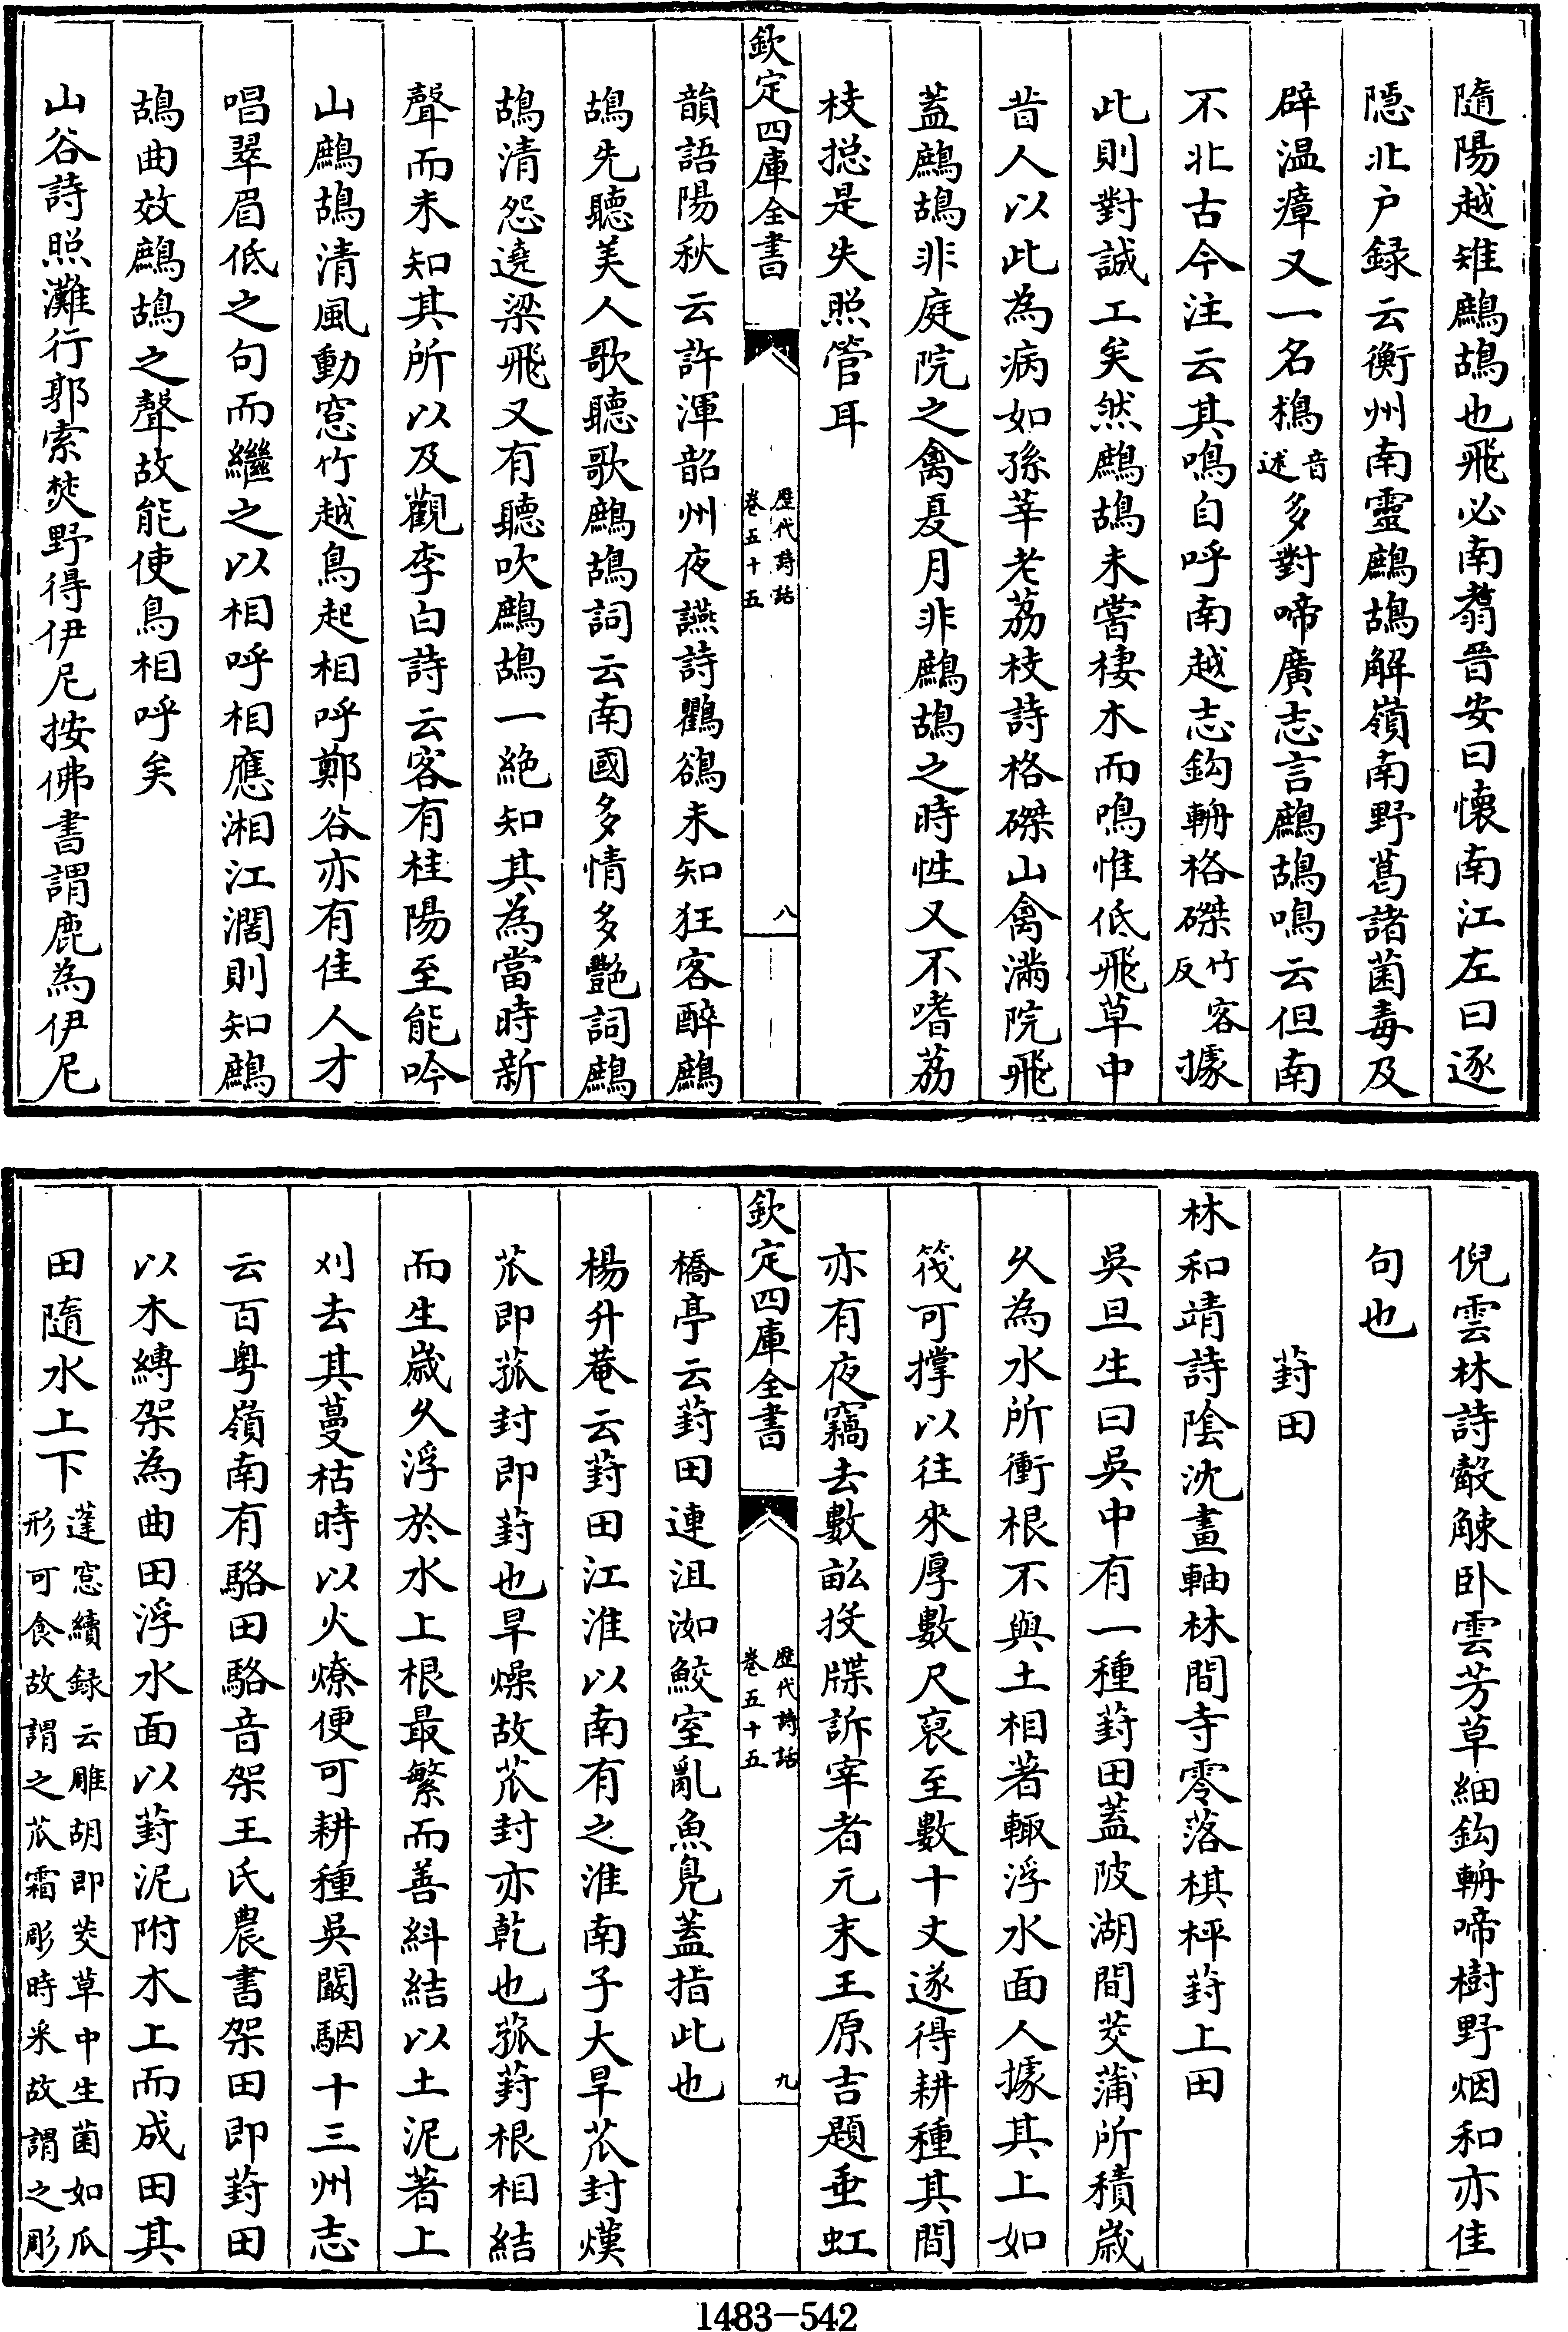 隨陽越雉鷓鴣也飛必南翥晉安曰懷南江左曰逐
隱北户録云衡州南靈鷓鴣解嶺南野葛諸菌毒及
辟温瘴又一名鶐音述多對啼廣志言鷓鴣鳴云但南
不北古今注云其鳴自呼南越志鈎輈格磔竹客反據
此則對誠工矣然鷓鴣未嘗棲木而鳴惟低飛草中
昔人以此為病如孫莘老荔枝詩格磔山禽滿院飛
蓋鷓鴣非庭院之禽夏月非鷓鴣之時性又不嗜荔
枝揔是失照管耳
欽定四庫全書
歴代詩話
卷五十五
八
韻語陽秋云許渾韶州夜讌詩鸜鵒未知狂客醉鷓
鴣先聽美人歌聽歌鷓鴣詞云南國多情多艷詞鷓
鴣清怨遶梁飛又有聽吹鷓鴣一絶知其為當時新
聲而未知其所以及觀李白詩云客有桂陽至能吟
山鷓鴣清風動窓竹越鳥起相呼鄭谷亦有佳人才
唱翠眉低之句而繼之以相呼相應湘江濶則知鷓
鴣曲效鷓鴣之聲故能使鳥相呼矣
山谷詩照灘行郭索焚野得伊尼按佛書謂鹿為伊尼
倪雲林詩觳觫卧雲芳草細鈎輈啼樹野烟和亦佳
句也
葑田
林和靖詩陰沈畫軸林間寺零落棋枰葑上田
吳旦生曰吳中有一種葑田蓋陂湖間茭蒲所積歲
久為水所衝根不與土相著輙浮水面人據其上如
筏可撑以往來厚數尺袤至數十丈遂得耕種其間
亦有夜竊去數畝投牒訴宰者元末王原吉題垂虹
欽定四庫全書
歴代詩話
卷五十五
九
橋亭云葑田連沮洳鮫室亂魚凫蓋指此也
楊升菴云葑田江淮以南有之淮南子大旱苽封熯
苽即菰封即葑也旱燥故苽封亦乾也菰葑根相結
而生歲久浮於水上根最繁而善紏結以土泥著上
刈去其蔓枯時以火燎便可耕種吳闞駰十三州志
云百粤嶺南有駱田駱音架王氏農書架田即葑田
以木縛架為曲田浮水面以葑泥附木上而成田其
田隨水上下蓬窓續録云雕胡即茭草中生菌如瓜
形可食故謂之苽霜彫時米故謂之彫
1483-542